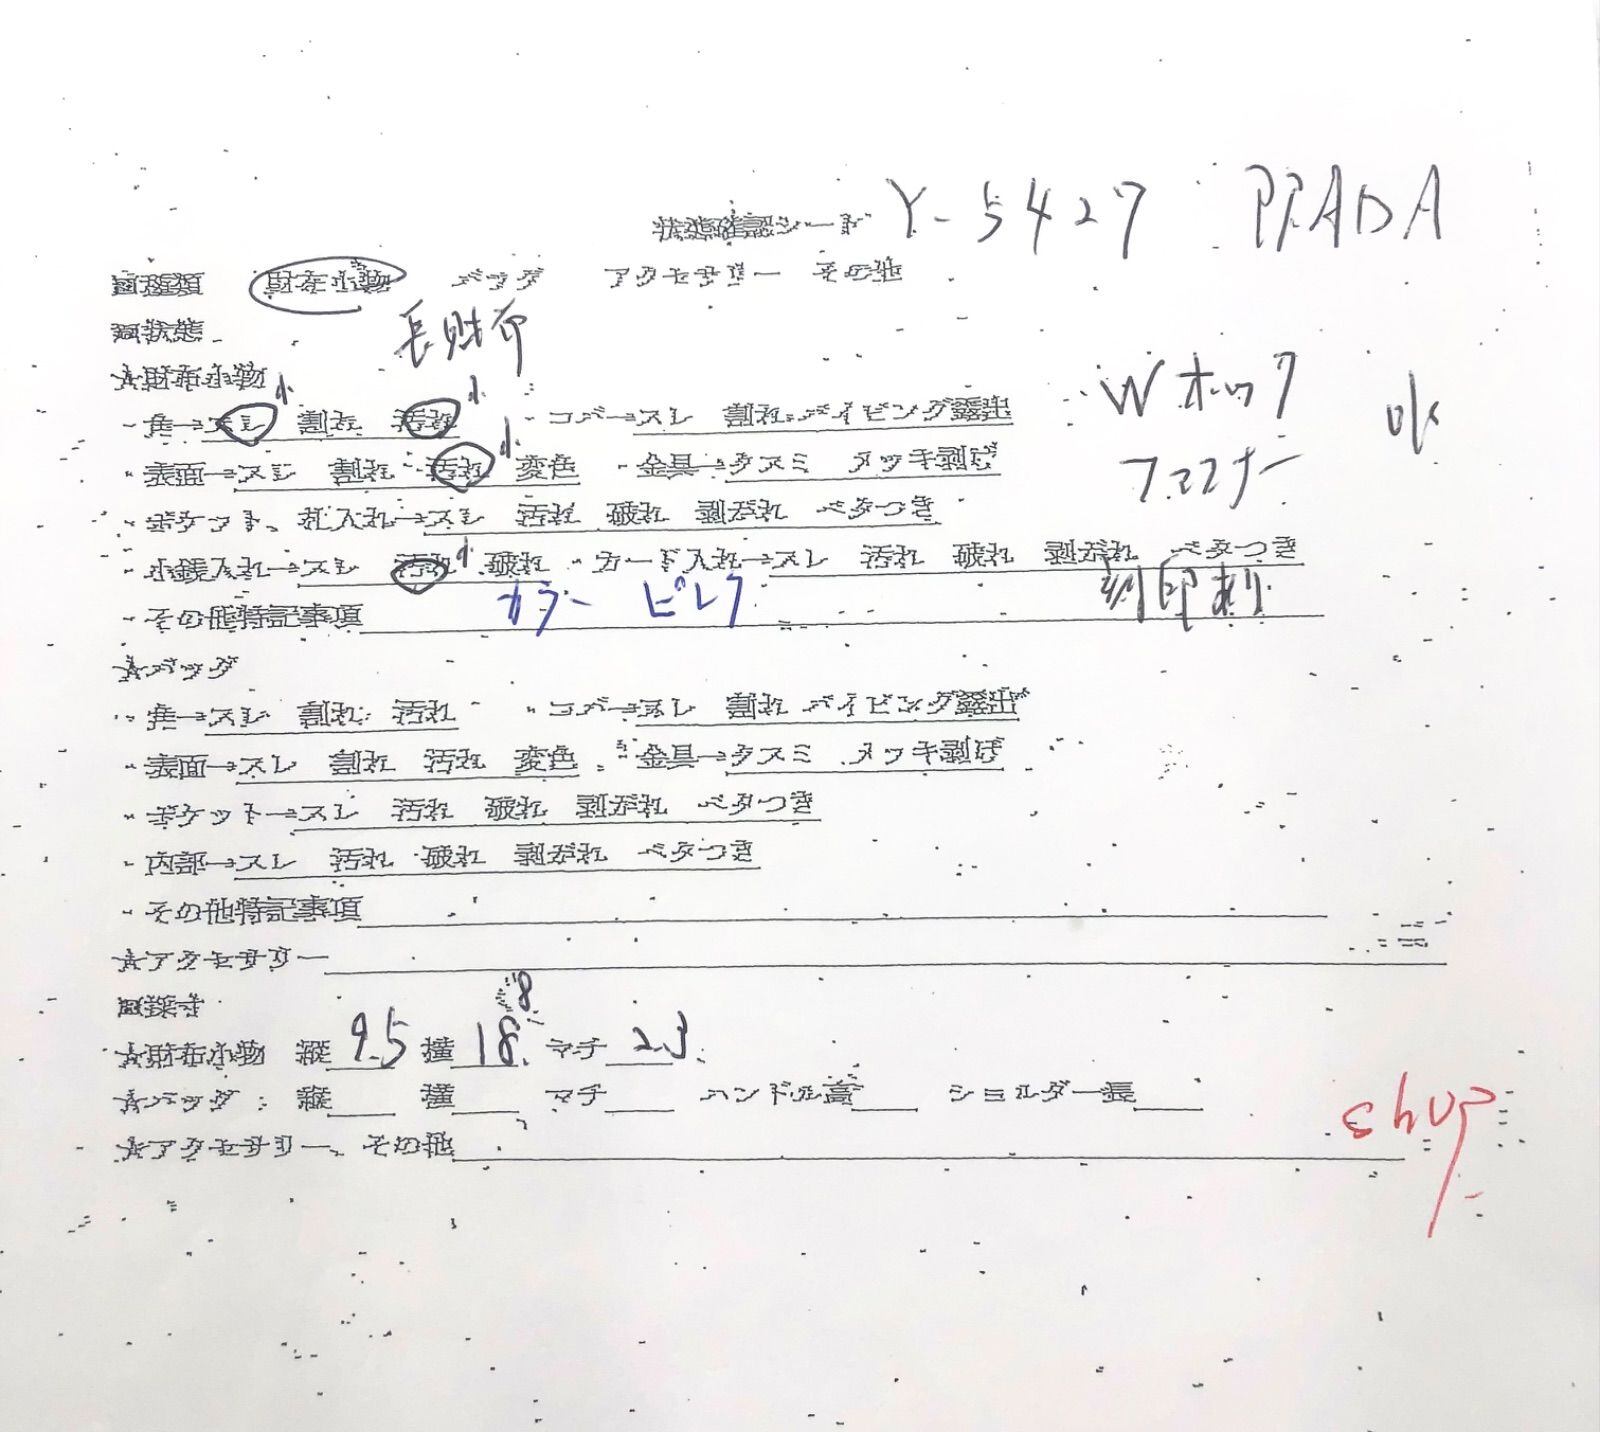 状態確認シート Y-5427 PRADA
□種類 財布小物 バッグ アクセサリー その他
□状態 長財布
☆財布小物
・角→スレ小 割れ 汚れ小 ・コバ→スレ 割れ パイピング露出 Wホック 水
・表面→スレ 割れ 汚れ小 変色 ・金具→クスミ メッキ剥げ ファスナー
・ポケット、札入れ→スレ 汚れ 破れ 剥がれ ベタつき
・小銭入れ→スレ 汚れ小 破れ ・カード入れ→スレ 汚れ 破れ 剥がれ ベタつき
・その他特記事項 カラー 刻印あり
☆バッグ
・角→スレ 割れ 汚れ ・コバ→スレ 割れ パイピング露出
・表面→スレ 割れ 汚れ 変色 ・金具→クスミ メッキ剥げ
・ポケット→スレ 汚れ 破れ 剥がれ ベタつき
・内部→スレ 汚れ 破れ 剥がれ ベタつき
・その他特記事項
☆アクセサリー
□採寸
☆財布小物 縦 9.5 横 18.8 マチ 2.3
☆バッグ 縦 横 マチ ハンドル高 ショルダー長
☆アクセサリー、その他